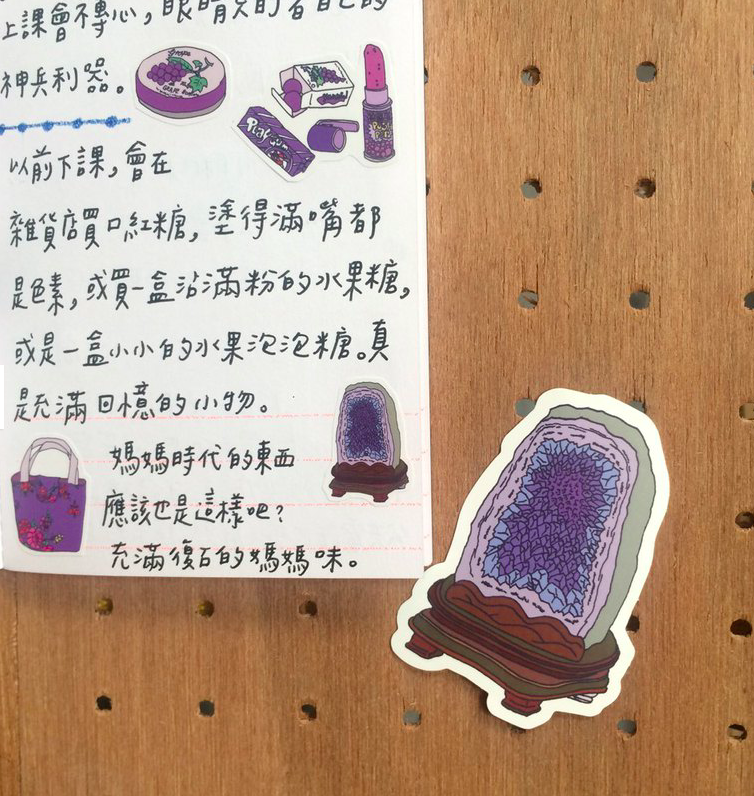 上課會不專心，眼睛又盯著自己的
神兵利器。
Grape
GRAPE
Play gum
以前下課，會在
雜貨店買口紅糖，塗得滿嘴都
是色素，或買一盒沾滿粉的水果糖，
或是一盒小小的水果泡泡糖。真
是充滿回憶的小物。
媽媽時代的東西
應該也是這樣吧？
充滿復古的媽媽味。